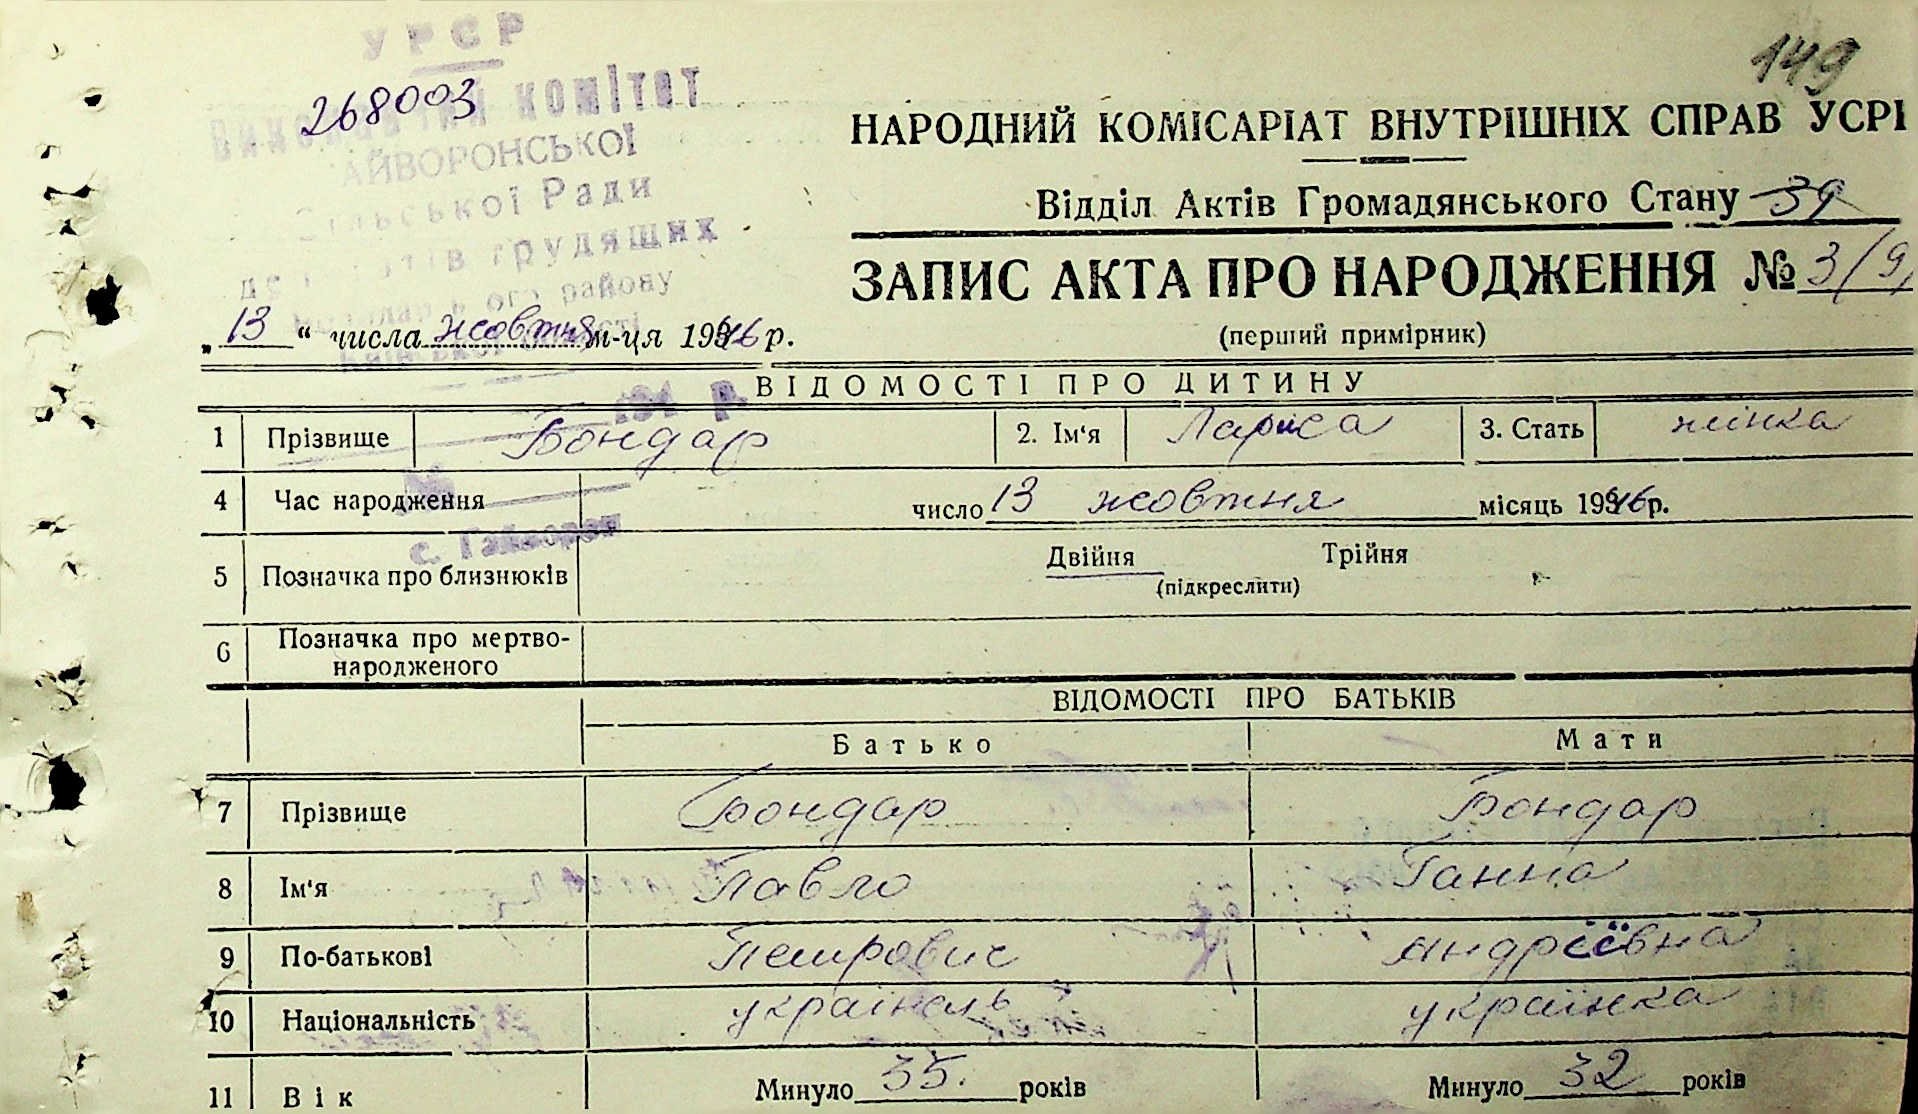 УРСР
268003
149
Виконавчий комітет
НАРОДНИЙ КОМІСАРІАТ ВНУТРІШНІХ СПРАВ УСРІ
АЙВОРОНСЬКОЇ
Сільської Ради
Відділ Актів Громадянського Стану 39
трудящих
ЗАПИС АКТА ПРО НАРОДЖЕННЯ № 3/9
району
„13“ числа жовтня м-ця 1946 р.
(перший примірник)
194 р.
ВІДОМОСТІ ПРО ДИТИНУ
1 Прізвище Бондар 2. Ім'я Лариса 3. Стать жінка
№
4 Час народження число 13 жовтня місяць 1946 р.
с. Гайворон
5 Позначка про близнюків Двійня Трійня
(підкреслити)
6 Позначка про мертво-
народженого
ВІДОМОСТІ ПРО БАТЬКІВ
Батько Мати
7 Прізвище Бондар Бондар
8 Ім'я Павло Ганна
9 По-батькові Петрович Андріївна
10 Національність українець українка
11 Вік Минуло 35 років Минуло 32 років